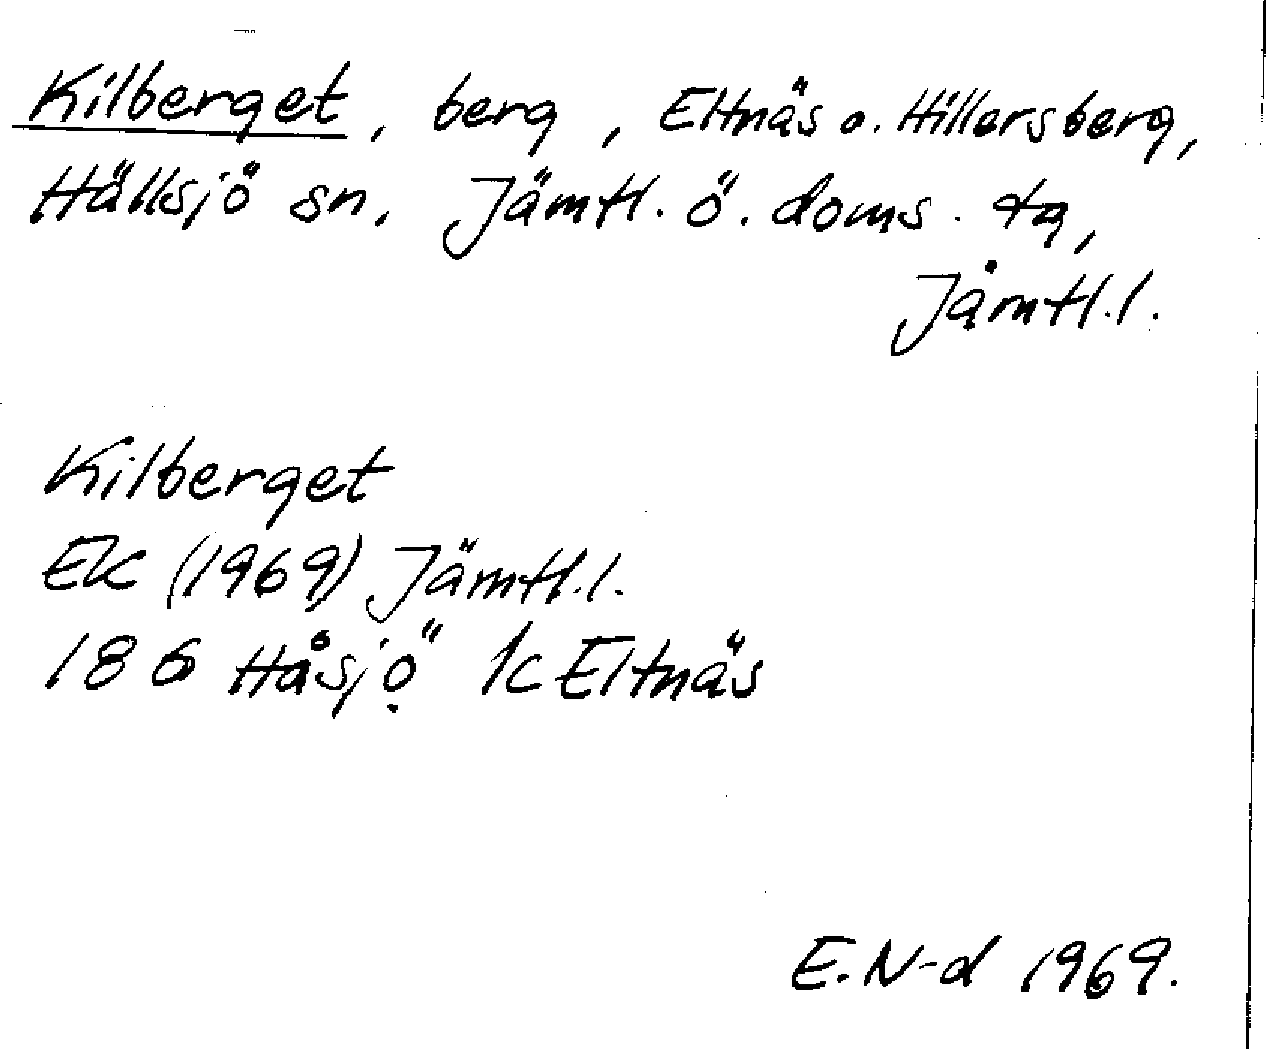 Kilberget, berg, Eltnäs o. Hillersberg,
Hällsjö sn. Jämtl. ö. doms. tg,
Jämtl.l.
Kilberget
Ek (1969) Jämtl.l.
186 Håsjö 1c Eltnäs
E.N-d 1969.